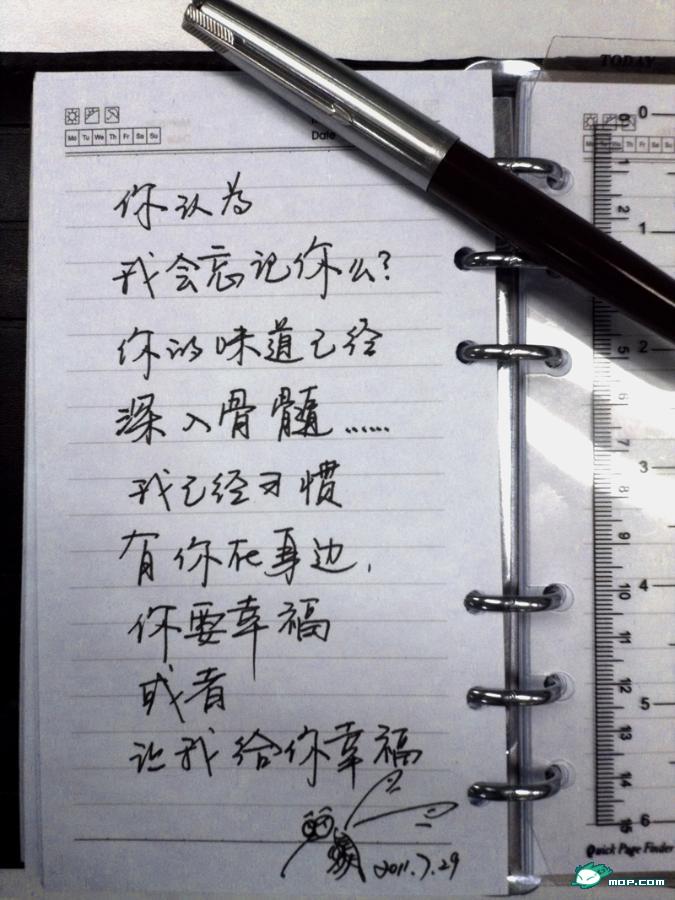 Mo Tu We Th Fr Sa Su
Date
TODAY
你认为
我会忘记你么?
你的味道已经
深入骨髓……
我已经习惯
有你在身边,
你要幸福
或者
让我给你幸福
2011.7.29
0
1
2
3
4
5
6
1
2
5
7
8
9
10
11
12
13
14
15
Quick Page Finder
MOP.COM